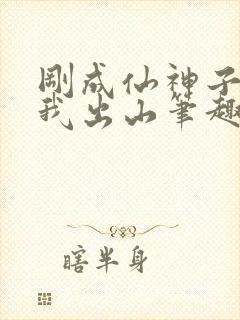 剛成仙神子
我出山筆趣
瞎半身